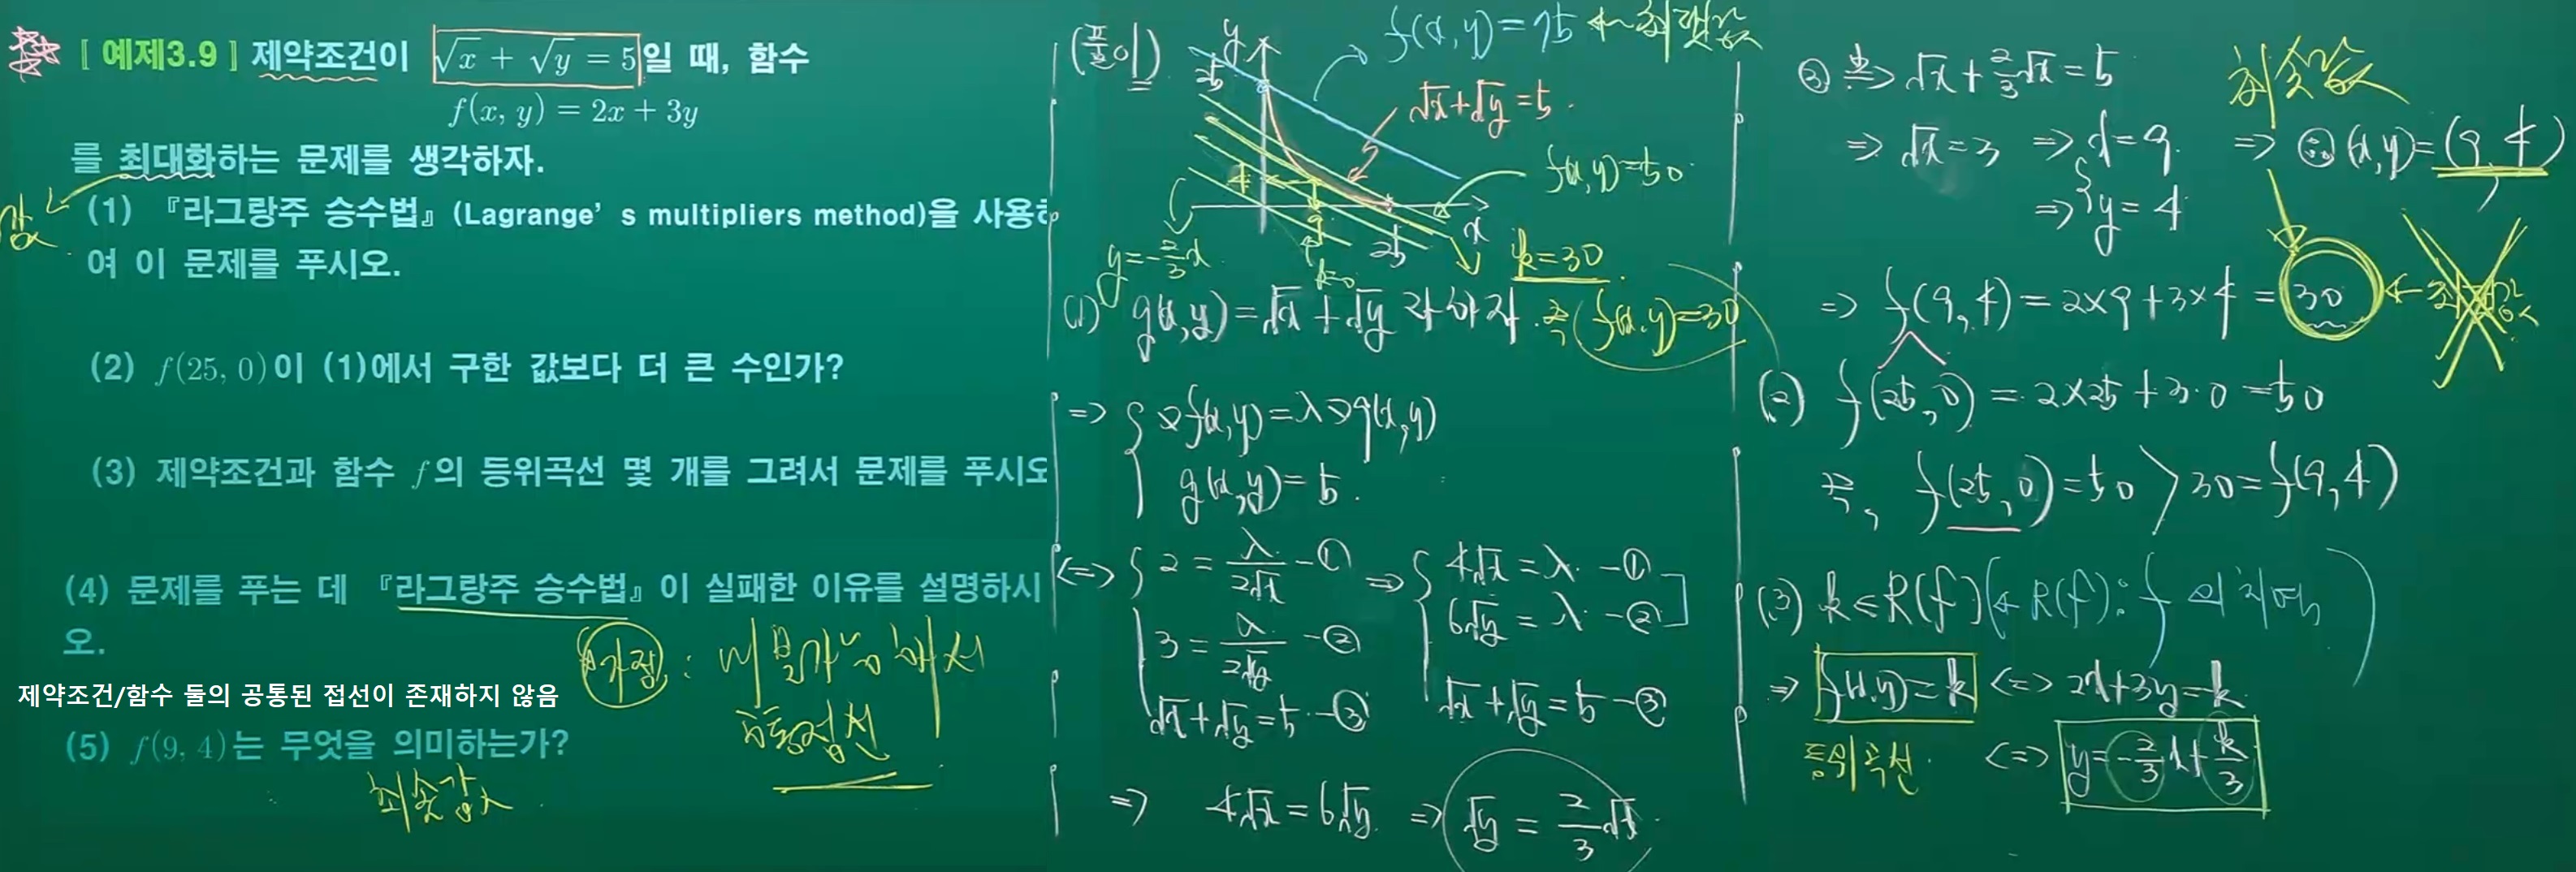 [ 예제3.9 ] 제약조건이 √x + √y = 5 일 때, 함수
f(x, y) = 2x + 3y
를 최대화하는 문제를 생각하자.
값
(1) 『라그랑주 승수법』(Lagrange's multipliers method)을 사용하
여 이 문제를 푸시오.
(2) f(25, 0)이 (1)에서 구한 값보다 더 큰 수인가?
(3) 제약조건과 함수 f의 등위곡선 몇 개를 그려서 문제를 푸시오
(4) 문제를 푸는 데 『라그랑주 승수법』이 실패한 이유를 설명하시
오.
가정 : 미분가능해서
공통접선
제약조건/함수 둘의 공통된 접선이 존재하지 않음
(5) f(9, 4)는 무엇을 의미하는가?
최솟값
(풀이)
y
25
f(x,y)=75 ← 최댓값
√x+√y=5
f(x,y)=50
4
9
25
x
y=-2/3x
k=0
k=30
(1) g(x,y)=√x+√y 라 하자. 즉 f(x,y)=30
=> ∇f(x,y)=λ∇g(x,y)
g(x,y)=5.
<=> 2 = λ/2√x -①
3 = λ/2√y -②
√x+√y=5 -③
=> 4√x=λ -①
6√y=λ -②
√x+√y=5 -③
=> 4√x=6√y => √y = 2/3√x
③ => √x+2/3√x=5
=> √x=3 => x=9
=> y=4
최솟값
=> ∴(x,y)=(9,4)
=> f(9,4)=2×9+3×4=30 ← 최댓값
(2) f(25,0)=2×25+3·0=50
즉, f(25,0)=50 > 30=f(9,4)
(3) k∈R(f) (← R(f): f의 치역)
=> f(x,y)=k <=> 2x+3y=k
등위곡선 <=> y=-2/3x+k/3